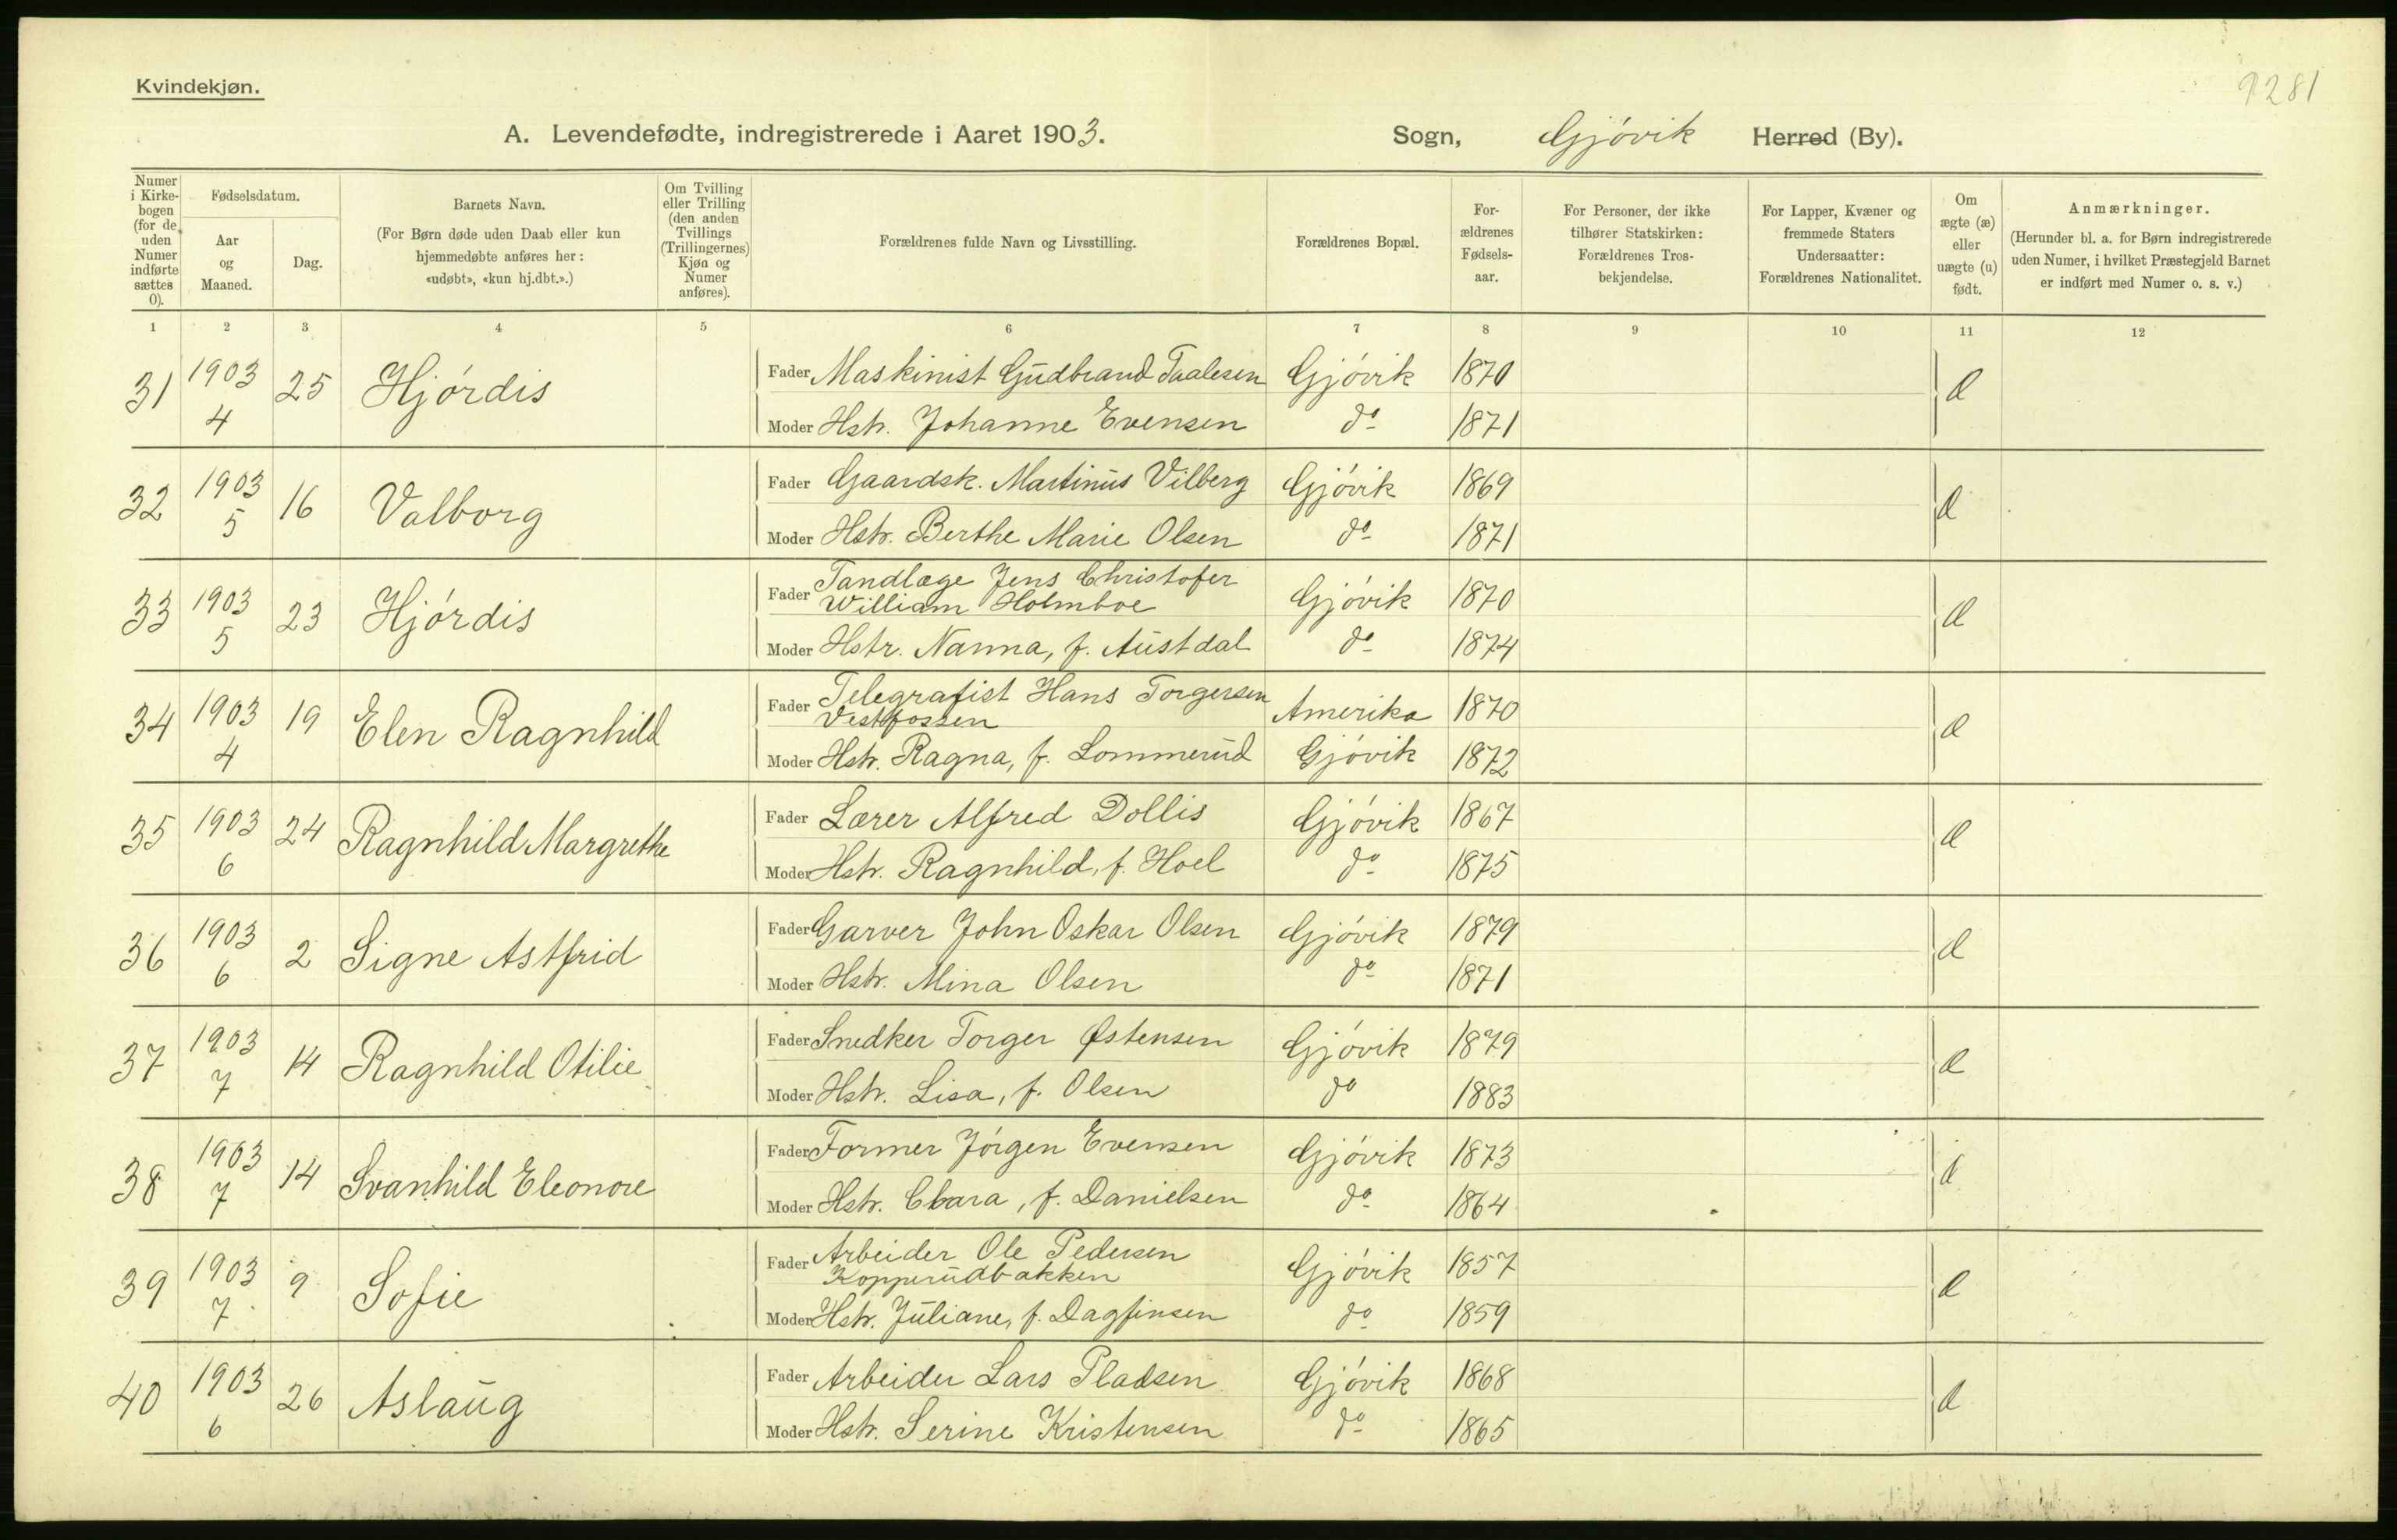 Kvindekjøn.
9281
A. Levendefødte, indregistrerede i Aaret 1903. Sogn, Gjövik Herred (By).
Numer i Kirkebogen (for de uden Numer indførte sættes 0).
Fødselsdatum.
Aar og Maaned.
Dag.
Barnets Navn.
(For Børn døde uden Daab eller kun hjemmedøbte anføres her: «udøbt», «kun hj.dbt.».)
Om Tvilling eller Trilling (den anden Tvillings (Trillingernes) Kjøn og Numer anføres).
Forældrenes fulde Navn og Livsstilling.
Forældrenes Bopæl.
Forældrenes Fødselsaar.
For Personer, der ikke tilhører Statskirken: Forældrenes Trosbekjendelse.
For Lapper, Kvæner og fremmede Staters Undersaatter: Forældrenes Nationalitet.
Om ægte (æ) eller uægte (u) født.
Anmærkninger.
(Herunder bl. a. for Børn indregistrerede uden Numer, i hvilket Præstegjeld Barnet er indført med Numer o. s. v.)
1 2 3 4 5 6 7 8 9 10 11 12
31 1903 4 25 Hjördis Fader Maskinist Gudbrand Taalesen Gjövik 1870 æ
Moder Hstr. Johanne Evensen do 1871
32 1903 5 16 Valborg Fader Gaardsk. Martinus Vilberg Gjövik 1869 æ
Moder Hstr. Berthe Marie Olsen do 1871
33 1903 5 23 Hjördis Fader Tandlæge Jens Christofer William Holmboe Gjövik 1870 æ
Moder Hstr. Nanna, f. Austdal do 1874
34 1903 4 19 Elen Ragnhild Fader Telegrafist Hans Torgersen Vestfossen Amerika 1870 æ
Moder Hstr. Ragna, f. Lommerud Gjövik 1872
35 1903 6 24 Ragnhild Margrethe Fader Lærer Alfred Dollis Gjövik 1867 æ
Moder Hstr. Ragnhild, f. Hoel do 1875
36 1903 6 2 Signe Astfrid Fader Garver John Oskar Olsen Gjövik 1879 æ
Moder Hstr. Mina Olsen do 1871
37 1903 7 14 Ragnhild Otilie Fader Snedker Torger Østensen Gjövik 1879 æ
Moder Hstr. Lisa, f. Olsen do 1883
38 1903 7 14 Svanhild Eleonore Fader Former Jörgen Evensen Gjövik 1873 æ
Moder Hstr. Clara, f. Danielsen do 1864
39 1903 7 9 Sofie Fader Arbeider Ole Pedersen Kopperudbakken Gjövik 1857 æ
Moder Hstr. Juliane, f. Dagfinsen do 1859
40 1903 6 26 Aslaug Fader Arbeider Lars Pladsen Gjövik 1868 æ
Moder Hstr. Serine Kristensen do 1865